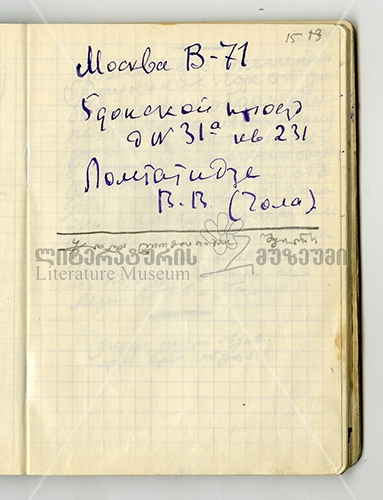 15-73
Москва В-71
5 донской проезд
д № 31а кв 231
Ломтатидзе
В.В. (Чола)
ლიტერატურის მუზეუმი
Literature Museum